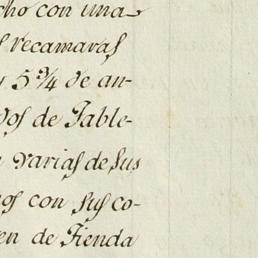 cho con una
s recamaras
y 5 3/4 de an-
dos de Table-
n varias de sus
os con sus co-
en de Tienda